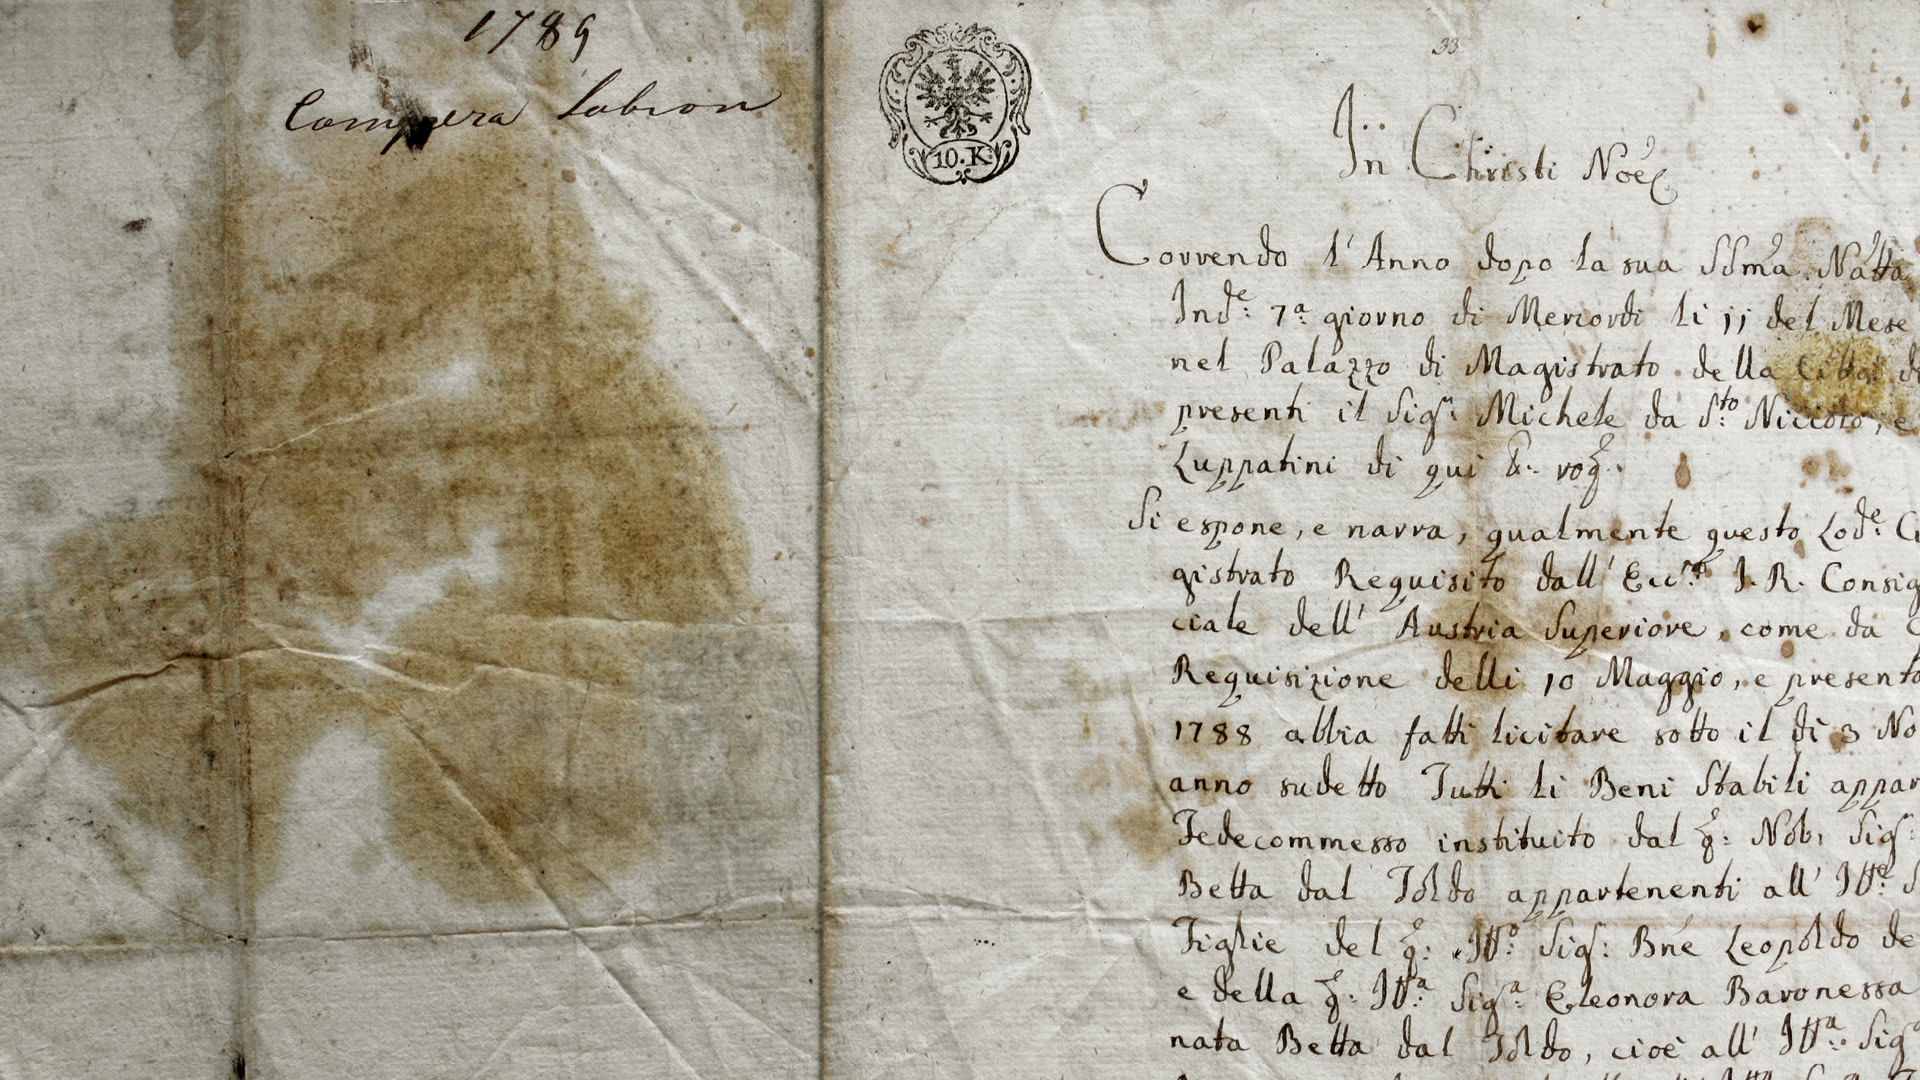 1789
Compera Labron
10. K
33
In Christi Noe
Correndo l'Anno dopo la sua SSma. Natta
Inde: 7a: giorno di Mercordi li 11 del Mese
nel Palazzo di Magistrato della Città di
presenti il Sigr: Michele da Sto: Niccolo, e
Luppatini di qui &.. rog.
Si espone, e narra, qualmente questo Lode:
gistrato Requisito dall' Ecco: I. R. Consig
ciale dell' Austria Superiore, come da
Requisizione delli 10 Maggio, e presenta
1788 abbia fatti licitare sotto il di 3 No
anno sudetto Tutti li Beni Stabili appar
Fedecommesso instituito dal q: Nob: Sig:
Betta dal Toldo appartenenti all' Itte:
Figlie del q: Itto: Sig: Bne Leopoldo de
e della q: Itta: Siga: Eleonora Baronessa
nata Betta dal Toldo, cioè all' Itta: Siga